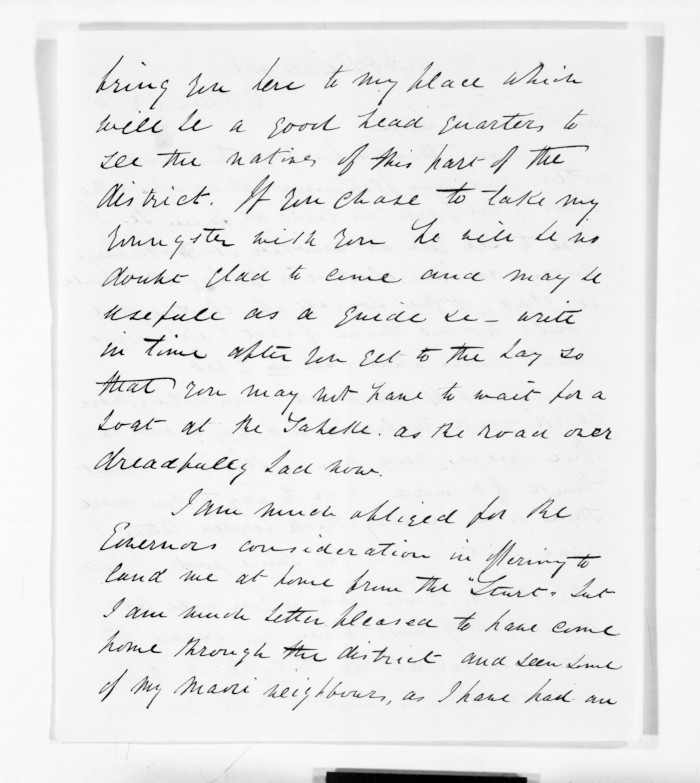 bring you here to my place which
will be a good head quarters to
see the natives of this part of the
district. If you chose to take my
youngster with you he will be no
doubt glad to come and may be
usefull as a guide &c - write
in time after you get to the Bay so
that you may not have to wait for a
boat at the Taheke. as the road over
dreadfully bad now.
I am much obliged for the
Governors consideration in offering to
land me at home from the "Sturt" but
I am much better pleased to have come
home through the district and seen some
of my Maori neighbours, as I have had an